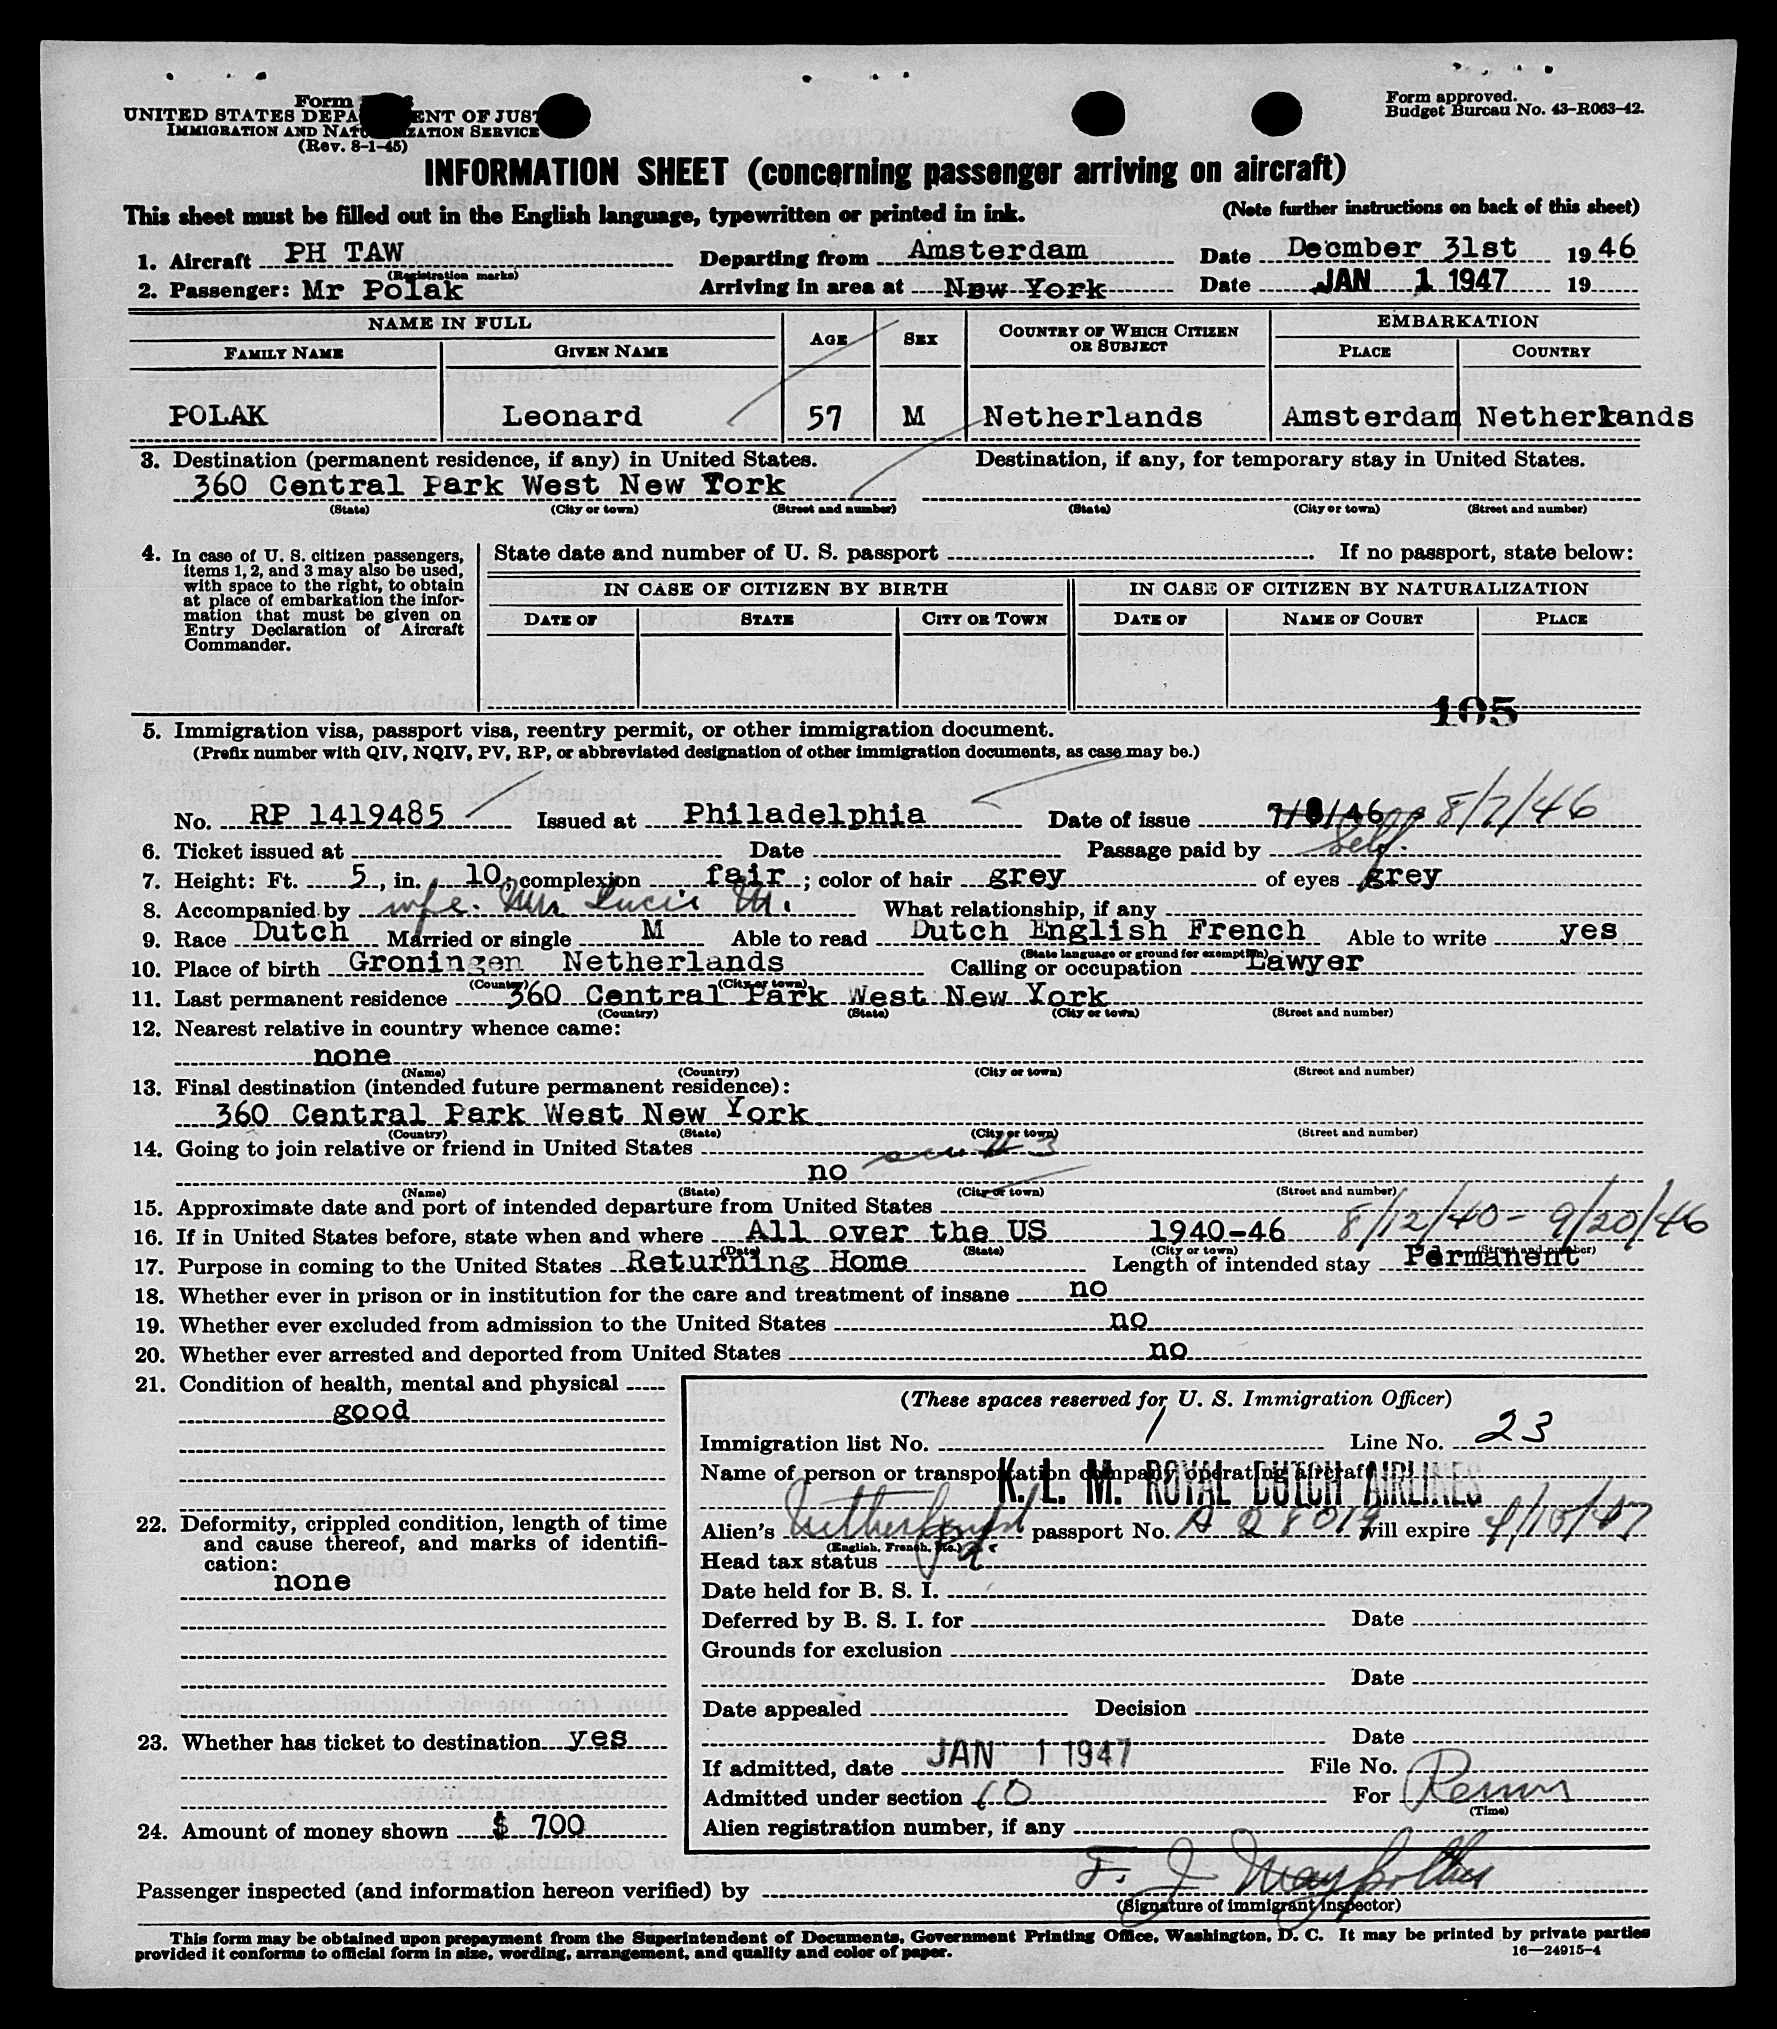 Form
UNITED STATES DEPA ENT OF JUST
IMMIGRATION AND NATU ZATION SERVICE
(Rev. 8-1-45)
Form approved.
Budget Bureau No. 43-R063-42.
INFORMATION SHEET (concerning passenger arriving on aircraft)
This sheet must be filled out in the English language, typewritten or printed in ink. (Note further instructions on back of this sheet)
1. Aircraft PH TAW Departing from Amsterdam Date Decmber 31st 19 46
(Registration marks)
2. Passenger: Mr Polak Arriving in area at New York Date JAN 1 1947 19
NAME IN FULL AGE SEX COUNTRY OF WHICH CITIZEN OR SUBJECT EMBARKATION
FAMILY NAME GIVEN NAME PLACE COUNTRY
POLAK Leonard 57 M Netherlands Amsterdam Netherlands
3. Destination (permanent residence, if any) in United States. Destination, if any, for temporary stay in United States.
360 Central Park West New York
(State) (City or town) (Street and number) (State) (City or town) (Street and number)
4. In case of U. S. citizen passengers, items 1, 2, and 3 may also be used, with space to the right, to obtain at place of embarkation the information that must be given on Entry Declaration of Aircraft Commander.
State date and number of U. S. passport . If no passport, state below:
IN CASE OF CITIZEN BY BIRTH IN CASE OF CITIZEN BY NATURALIZATION
DATE OF STATE CITY OR TOWN DATE OF NAME OF COURT PLACE
105
5. Immigration visa, passport visa, reentry permit, or other immigration document.
(Prefix number with QIV, NQIV, PV, RP, or abbreviated designation of other immigration documents, as case may be.)
No. RP 1419485 Issued at Philadelphia Date of issue 7/8/46 8/7/46
6. Ticket issued at Date Passage paid by Self.
7. Height: Ft. 5, in. 10; complexion fair; color of hair grey of eyes grey
8. Accompanied by wife. Mrs Lucie M. What relationship, if any
9. Race Dutch Married or single M Able to read Dutch English French Able to write yes
(State language or ground for exemption)
10. Place of birth Groningen Netherlands Calling or occupation Lawyer
(Country) (City or town)
11. Last permanent residence 360 Central Park West New York
(Country) (State) (City or town) (Street and number)
12. Nearest relative in country whence came:
none
(Name) (Country) (City or town) (Street and number)
13. Final destination (intended future permanent residence):
360 Central Park West New York
(Country) (State) (City or town) (Street and number)
14. Going to join relative or friend in United States
no # 3
(Name) (State) (City or town) (Street and number)
15. Approximate date and port of intended departure from United States
16. If in United States before, state when and where All over the US 1940-46 8/12/40 - 9/20/46
(Date) (State) (City or town) (Street and number)
17. Purpose in coming to the United States Returning Home Length of intended stay Permanent
18. Whether ever in prison or in institution for the care and treatment of insane no
19. Whether ever excluded from admission to the United States no
20. Whether ever arrested and deported from United States no
21. Condition of health, mental and physical
good
22. Deformity, crippled condition, length of time and cause thereof, and marks of identification:
none
23. Whether has ticket to destination yes
24. Amount of money shown $ 700
(These spaces reserved for U. S. Immigration Officer)
Immigration list No. 1 Line No. 23
Name of person or transportation company operating aircraft
K. L. M. ROYAL DUTCH AIRLINES
Alien's Netherland passport No. A 28019 will expire 4/10/47
(English, French, etc.)
Head tax status
Date held for B. S. I.
Deferred by B. S. I. for Date
Grounds for exclusion
Date
Date appealed Decision
Date
If admitted, date JAN 1 1947 File No.
Admitted under section 10 For
(Time)
Alien registration number, if any
Passenger inspected (and information hereon verified) by F. J.
(Signature of immigrant inspector)
This form may be obtained upon prepayment from the Superintendent of Documents, Government Printing Office, Washington, D. C. It may be printed by private parties
provided it conforms to official form in size, wording, arrangement, and quality and color of paper. 16—24915-4